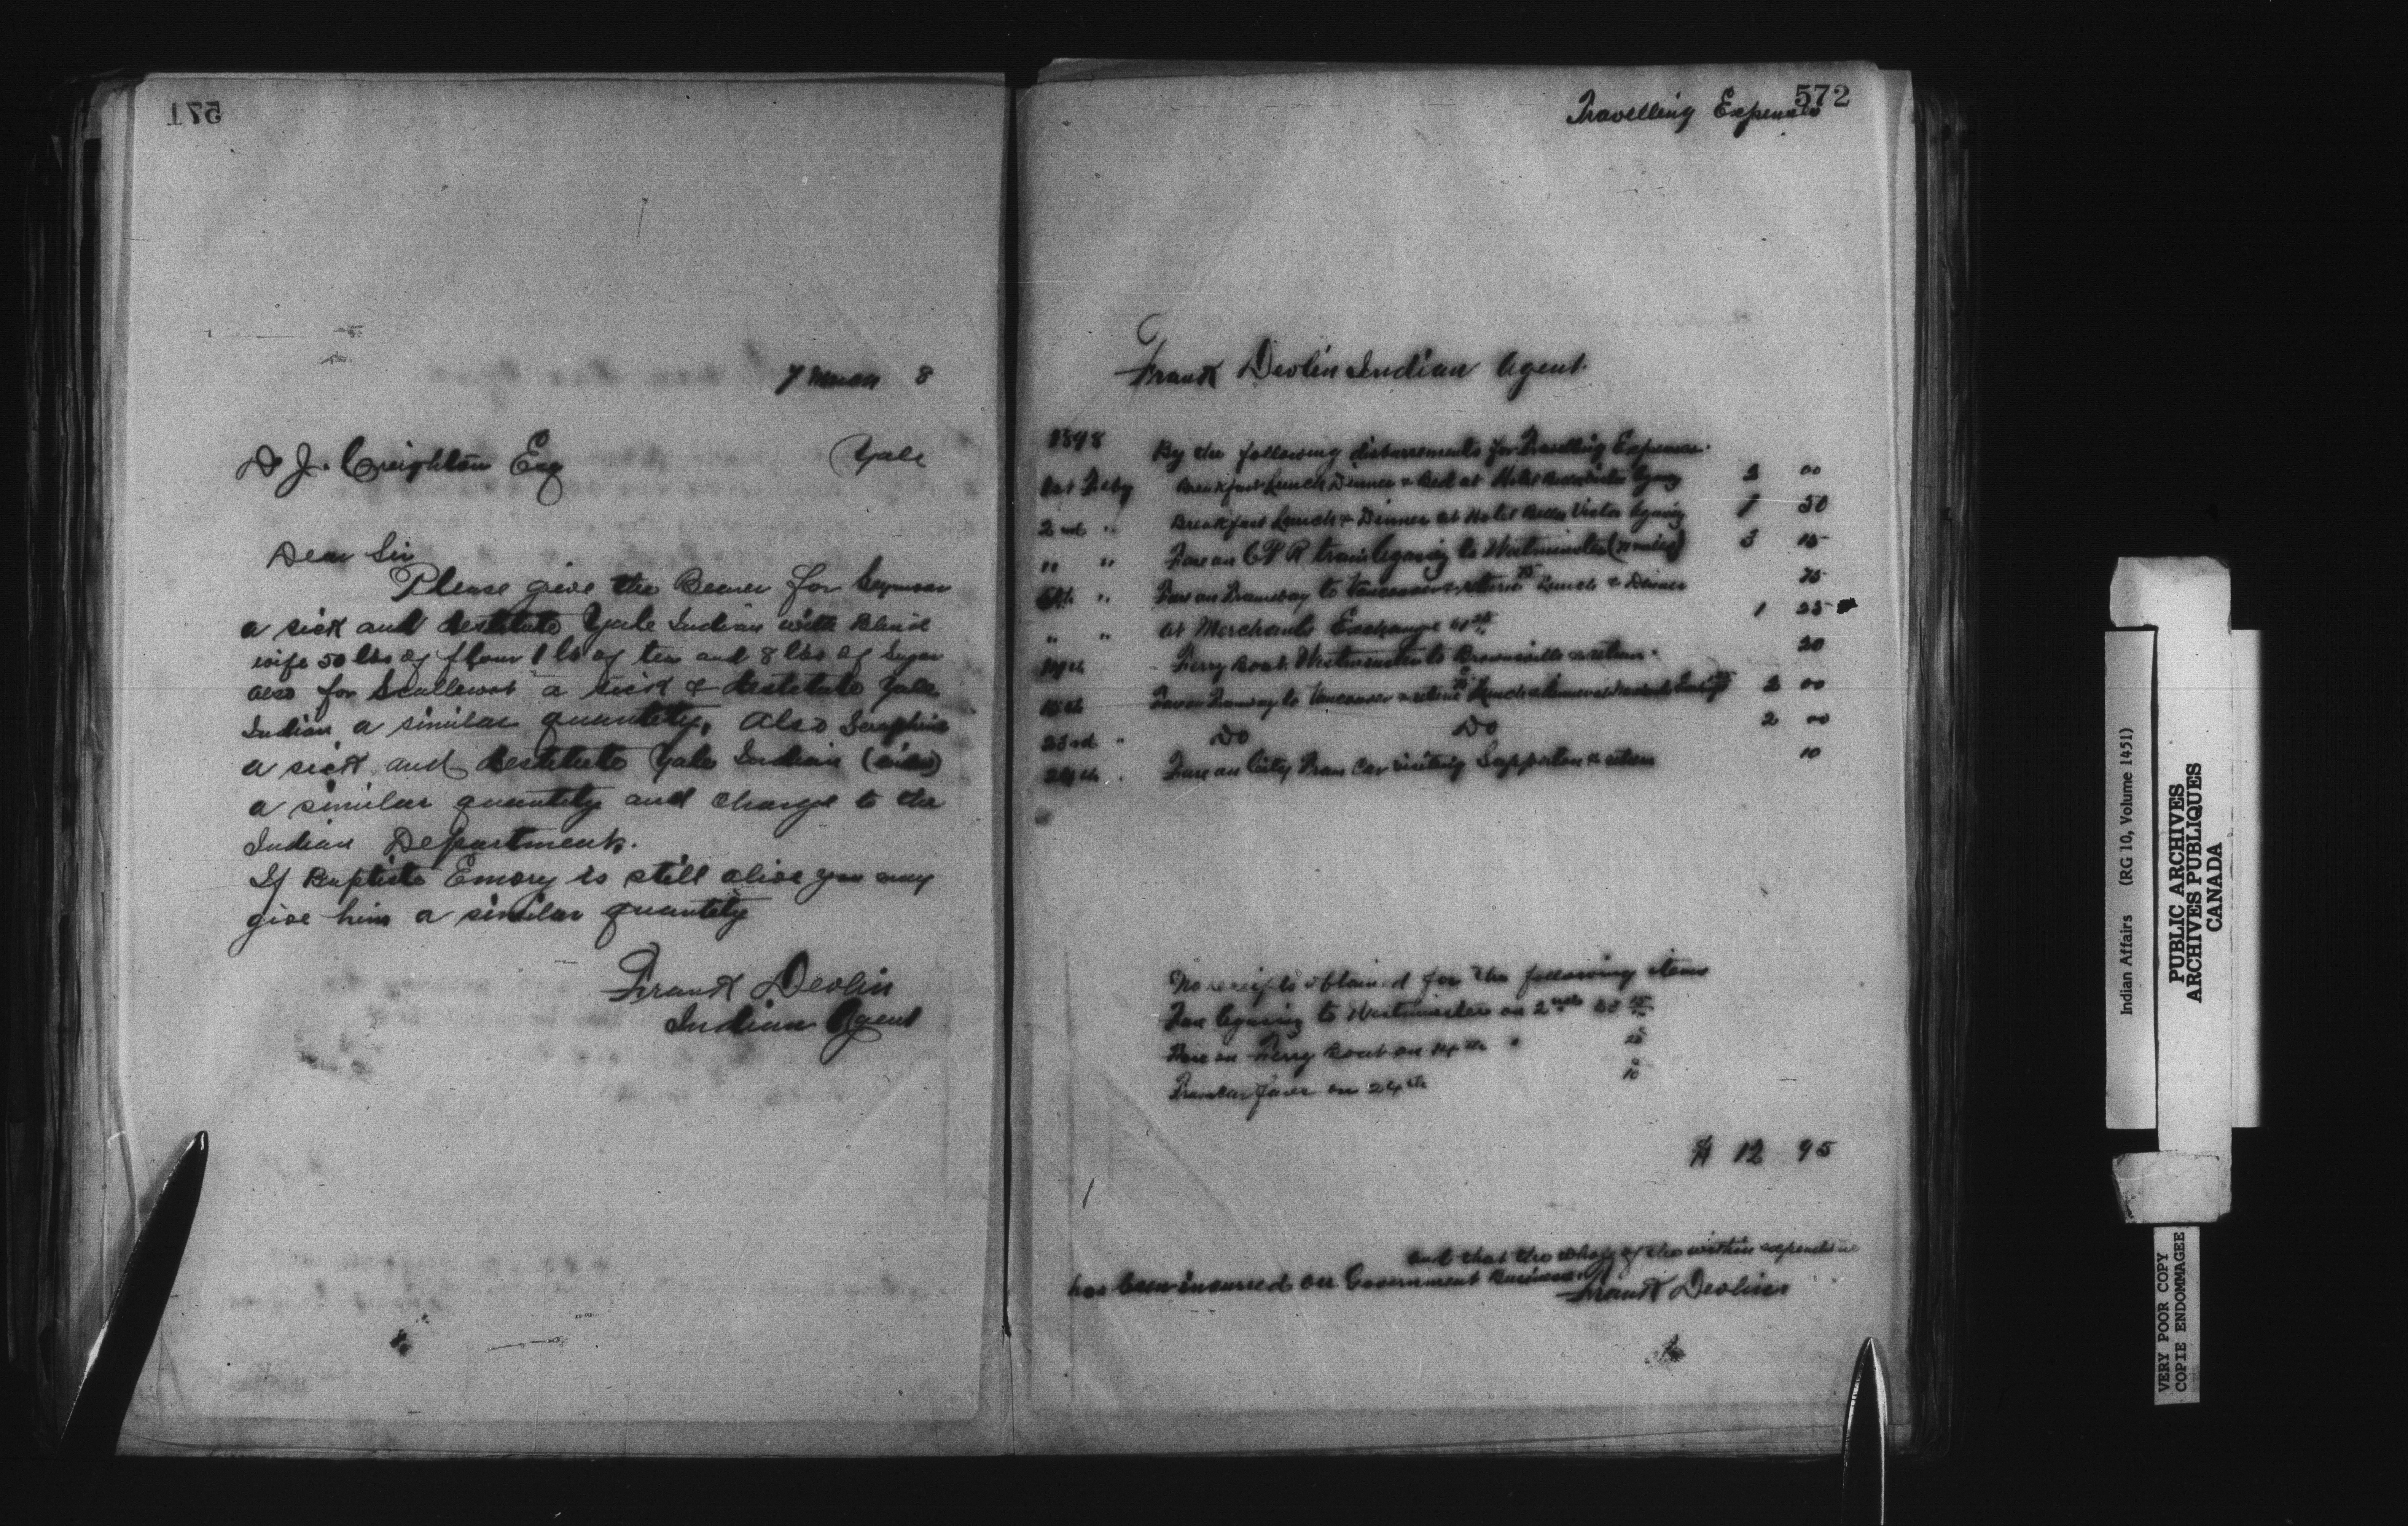 571
7 March 8
D J. Creighton Esq
Yale
Dear Sir
Please give the Bearer for Seymour
a sick and destitute Yale Indian with Blind
wife 50 lbs of flour 1 lb of tea and 8 lbs of Sugar
also for a sick & destitute Yale
Indian a similar quantity, Also Seraphine
a sick and destitute Yale Indian
a similar quantity and charge to the
Indian Department.
If Baptiste Emory is still alive you may
give him a similar quantity
Frank Devlin
Indian Agent
572
Travelling Expenses
Frank Devlin Indian Agent.
1898
By the following disbursements for Travelling Expenses.
1st Feby Breakfast Lunch Dinner & Bed at Hotel Bella Vista Agassiz 2 00
2nd " Breakfast Lunch & Dinner at Hotel Bella Vista Agassiz 1 50
" " Fare on C P R train Agassiz to Westminster 3 15
" Fare on Tramway to Vancouver & return Lunch & Dinner 75
" " at Merchants Exchange 1 25
14th Ferry Boat Westminster to Brownsville & return. 20
Fare on Tramway to Vancouver & return Lunch & Dinner at 2 00
23rd " Do Do 2 00
24th " Fare on City Tram Car visiting Sapperton & return 10
No receipts obtained for the following items
Fare Agassiz to Westminster on 2nd
Fare on Ferry Boat on 14th "
Tramcar fares on 24th 10
$ 12 95
and that the whole of the within expenditure
has been incurred on Government Business
Frank Devlin
Indian Affairs (RG 10, Volume 1451)
PUBLIC ARCHIVES
ARCHIVES PUBLIQUES
CANADA
VERY POOR COPY
COPIE ENDOMMAGEE